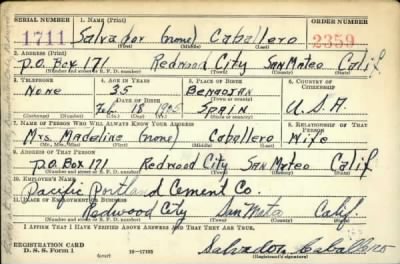 SERIAL NUMBER 1. NAME (Print) ORDER NUMBER
1711 Salvador (none) Caballero 2359
(First) (Middle) (Last)
2. ADDRESS (Print)
P.O. Box 171 Redwood City San Mateo Calif.
(Number and street or R. F. D. number) (Town) (County) (State)
3. TELEPHONE 4. AGE IN YEARS 5. PLACE OF BIRTH 6. COUNTRY OF CITIZENSHIP
None 35 Benaojan U.S.A.
DATE OF BIRTH (Town or county)
Feb 15 1905 Spain
(Mo.) (Day) (Yr.) (State or country)
7. NAME OF PERSON WHO WILL ALWAYS KNOW YOUR ADDRESS 8. RELATIONSHIP OF THAT PERSON
Mrs Madeline (none) Caballero Wife
(Mr., Mrs., Miss) (First) (Middle) (Last)
9. ADDRESS OF THAT PERSON
P.O. Box 171 Redwood City San Mateo Calif.
(Number and street or R. F. D. number) (Town) (County) (State)
10. EMPLOYER'S NAME
Pacific Portland Cement Co.
11. PLACE OF EMPLOYMENT OR BUSINESS
Redwood City San Mateo Calif.
(Number and street or R. F. D. number) (Town) (County) (State)
I AFFIRM THAT I HAVE VERIFIED ABOVE ANSWERS AND THAT THEY ARE TRUE.
REGISTRATION CARD
D. S. S. Form 1 (over) 16—17105 Salvador Caballero
(Registrant's signature)